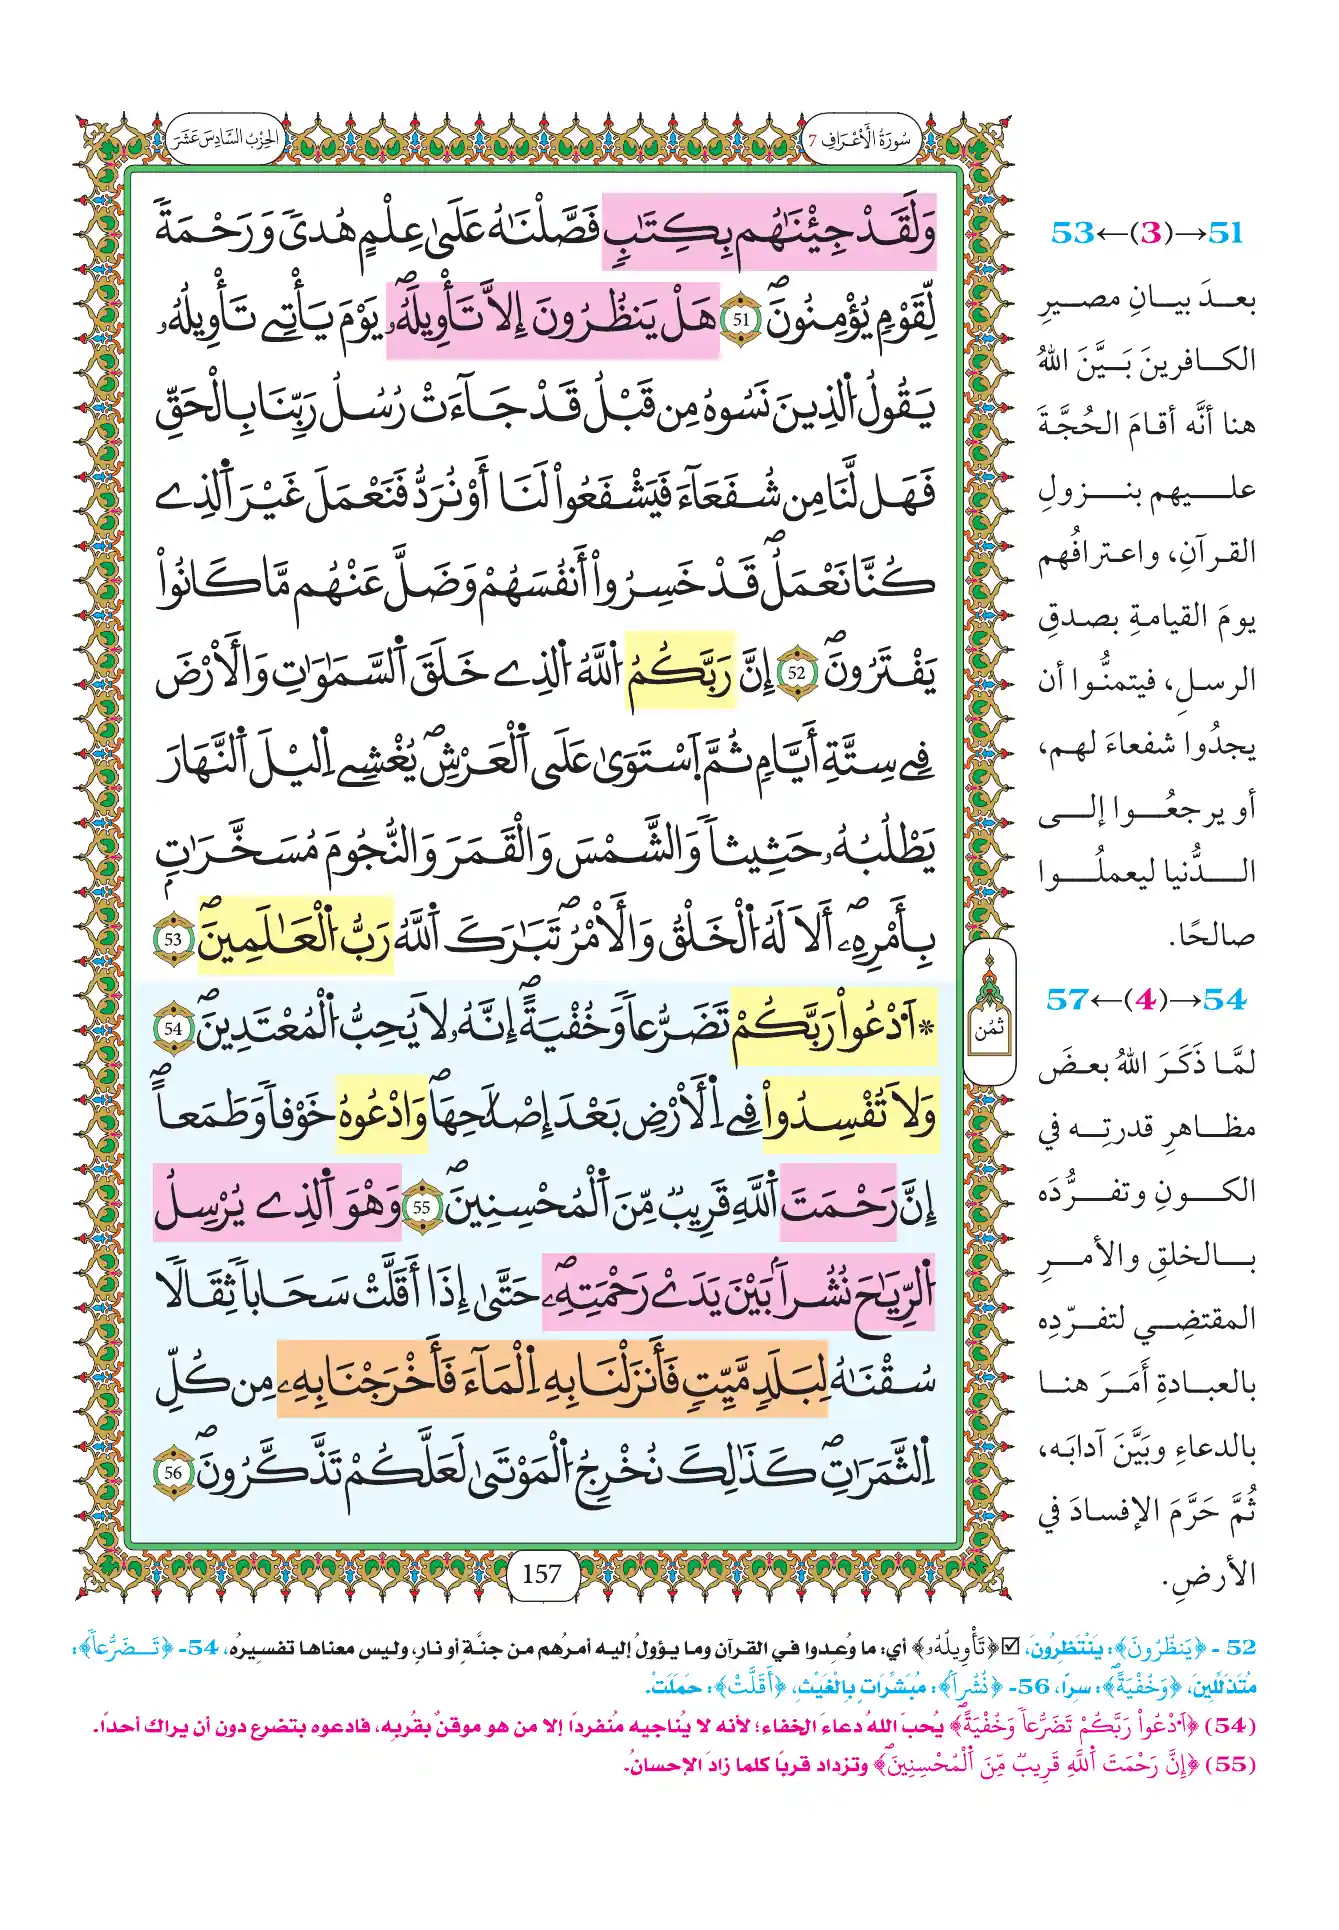 سُورَةُ الْأَعْرَافِ 7
الحِزْبُ السَّادِسَ عَشَرَ
وَلَقَدْ جِئْنَٰهُم بِكِتَٰبٍ فَصَّلْنَٰهُ عَلَىٰ عِلْمٍ هُدىٗ وَرَحْمَةٗ
لِّقَوْمٍ يُؤْمِنُونَۖ 51 هَلْ يَنظُرُونَ إِلَّا تَأْوِيلَهُۥۖ يَوْمَ يَأْتِے تَأْوِيلُهُۥ
يَقُولُ اُ۬لذِينَ نَسُوهُ مِن قَبْلُ قَدْ جَآءَتْ رُسُلُ رَبِّنَا بِالْحَقِّ
فَهَل لَّنَا مِن شُفَعَآءَ فَيَشْفَعُواْ لَنَا أَوْ نُرَدُّ فَنَعْمَلَ غَيْرَ اَ۬لذِے
كُنَّا نَعْمَلُۖ قَدْ خَسِرُواْ أَنفُسَهُمْ وَضَلَّ عَنْهُم مَّا كَانُواْ
يَفْتَرُونَۖ 52 إِنَّ رَبَّكُمُ اُ۬للَّهُ اُ۬لذِے خَلَقَ اَ۬لسَّمَٰوَٰتِ وَالْأَرْضَ
فِے سِتَّةِ أَيَّامٖ ثُمَّ اَ۪سْتَوَىٰ عَلَى اَ۬لْعَرْشِۖ يُغْشِے اِ۬ليْلَ اَ۬لنَّهَارَ
يَطْلُبُهُۥ حَثِيثاٗ وَالشَّمْسَ وَالْقَمَرَ وَالنُّجُومَ مُسَخَّرَٰتِۢ
بِأَمْرِهِۦٓۖ أَلَا لَهُ اُ۬لْخَلْقُ وَالْأَمْرُۖ تَبَٰرَكَ اَ۬للَّهُ رَبُّ اُ۬لْعَٰلَمِينَۖ 53
* اَ۟دْعُواْ رَبَّكُمْ تَضَرُّعاٗ وَخُفْيَةًۖ إِنَّهُۥ لَا يُحِبُّ اُ۬لْمُعْتَدِينَۖ 54
وَلَا تُفْسِدُواْ فِے اِ۬لْأَرْضِ بَعْدَ إِصْلَٰحِهَاۖ وَادْعُوهُ خَوْفاٗ وَطَمَعاًۖ
إِنَّ رَحْمَتَ اَ۬للَّهِ قَرِيبٞ مِّنَ اَ۬لْمُحْسِنِينَۖ 55 وَهْوَ اَ۬لذِے يُرْسِلُ
اُ۬لرِّيَٰحَ نُشُراَۢ بَيْنَ يَدَےْ رَحْمَتِهِۦۖ حَتَّىٰ إِذَا أَقَلَّتْ سَحَاباٗ ثِقَالاٗ
سُقْنَٰهُ لِبَلَدٖ مَّيِّتٖ فَأَنزَلْنَا بِهِ اِ۬لْمَآءَ فَأَخْرَجْنَا بِهِۦ مِن كُلِّ
اِ۬لثَّمَرَٰتِۖ كَذَٰلِكَ نُخْرِجُ اُ۬لْمَوْتَىٰ لَعَلَّكُمْ تَذَّكَّرُونَۖ 56
51→(3)←53
بعدَ بيانِ مصيرِ
الكافرينَ بَيَّنَ اللهُ
هنا أنَّه أقامَ الحُجَّةَ
عليهم بنزولِ
القرآنِ، واعترافُهم
يومَ القيامةِ بصدقِ
الرسلِ، فيتمنُّوا أن
يجدُوا شفعاءَ لهم،
أو يرجعُوا إلى
الدُّنيا ليعملُوا
صالحًا.
54→(4)←57
لمَّا ذَكَرَ اللهُ بعضَ
مظاهرِ قدرتِه في
الكونِ وتفرُّدَه
بالخلقِ والأمرِ
المقتضِي لتفرّدِه
بالعبادةِ أَمَرَ هنا
بالدعاءِ وبَيَّنَ آدابَه،
ثُمَّ حَرَّمَ الإفسادَ في
الأرضِ.
ثُمُن
157
52 - ﴿يَنظُرُونَ﴾: يَنْتَظِرُونَ، ☑ ﴿تَأْوِيلُهُۥ﴾ أي: ما وُعِدوا في القرآن وما يؤولُ إليه أمرُهم من جنَّةٍ أو نارٍ، وليس معناها تفسيرُه، 54- ﴿تَضَرُّعاٗ﴾:
مُتَذَلِّلينَ، ﴿وَخُفْيَةًۖ﴾: سرًا، 56- ﴿نُشُراَۢ﴾: مُبَشِّرَاتٍ بِالْغَيْثِ، ﴿أَقَلَّتْ﴾: حَمَلَتْ.
(54) ﴿اَ۟دْعُواْ رَبَّكُمْ تَضَرُّعاٗ وَخُفْيَةًۖ﴾ يُحبّ الله دعاءَ الخفاء؛ لأنه لا يُناجيه مُنفردًا إلا من هو موقنٌ بقُربِه، فادعوه بتضرع دون أن يراك أحدًا.
(55) ﴿إِنَّ رَحْمَتَ اَ۬للَّهِ قَرِيبٞ مِّنَ اَ۬لْمُحْسِنِينَۖ﴾ وتزداد قربًا كلما زادَ الإحسانُ.